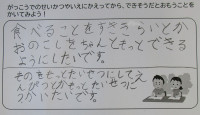 がっこうでのせいかつやいえにかえってから、できそうだとおもうことを
かいてみよう!
食べることをすききらいとか
おのこしをちゃんともっとできる
ようにしたいです。
そのをもっとたいせつにしてえ
んぴつとかもったいせつに
つかいたいです。